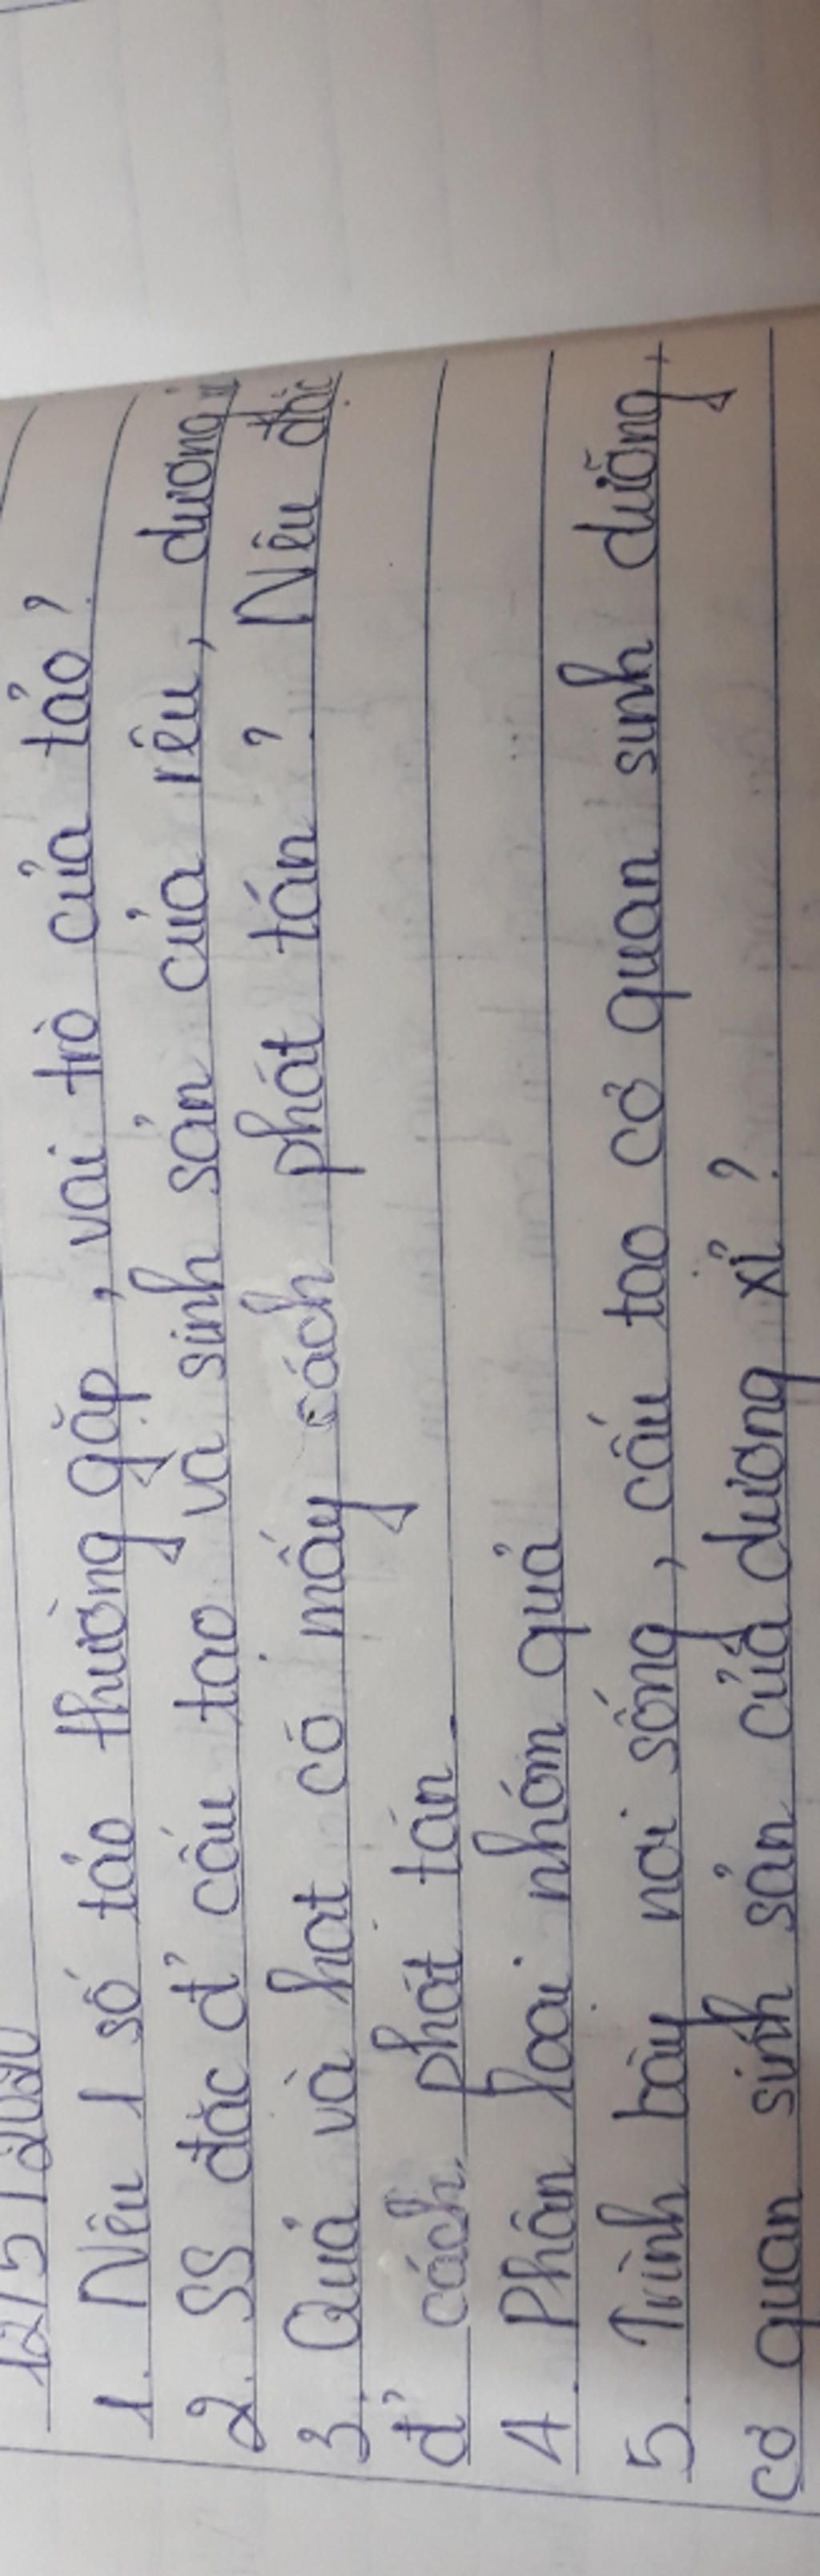 12/5/2020
1. Nêu 1 số tảo thường gặp, vai trò của tảo?
2. SS đặc đ' cấu tạo và sinh sản của rêu, dương xỉ
3. Quả và hạt có mấy cách phát tán? Nêu đặc
đ' cách phát tán.
4. Phân loại nhóm quả
5. Trình bày nơi sống, cấu tạo cơ quan sinh dưỡng +
cơ quan sinh sản của dương xỉ?